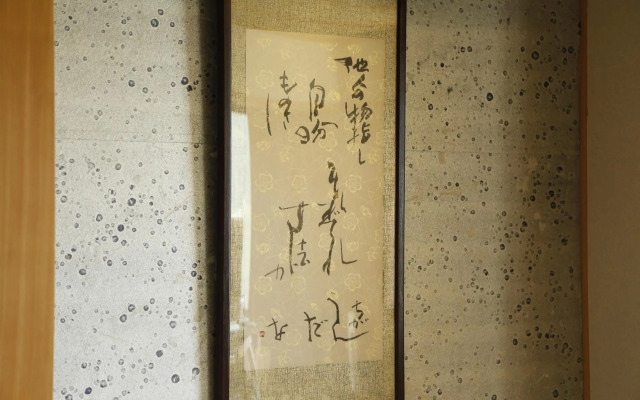 他人の物指し
自分の
ものさし
それぞれ
寸法が
ちがう
んだ
な